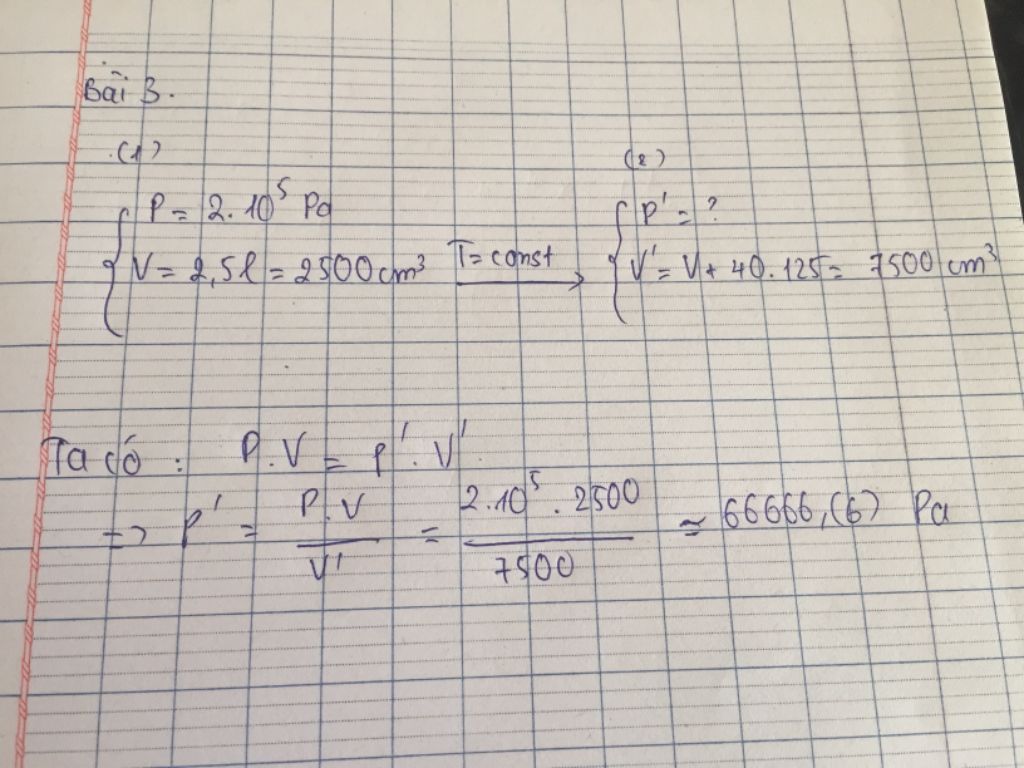 Bài 3.
(1) (2)
P = 2.10⁵ Pa P' = ?
V = 2,5l = 2500cm³ T=const → V' = V + 40.125 = 7500 cm³
Ta có : P.V = P'.V'
=> P' = P.V / V' = 2.10⁵ . 2500 / 7500 ≃ 66666,(6) Pa